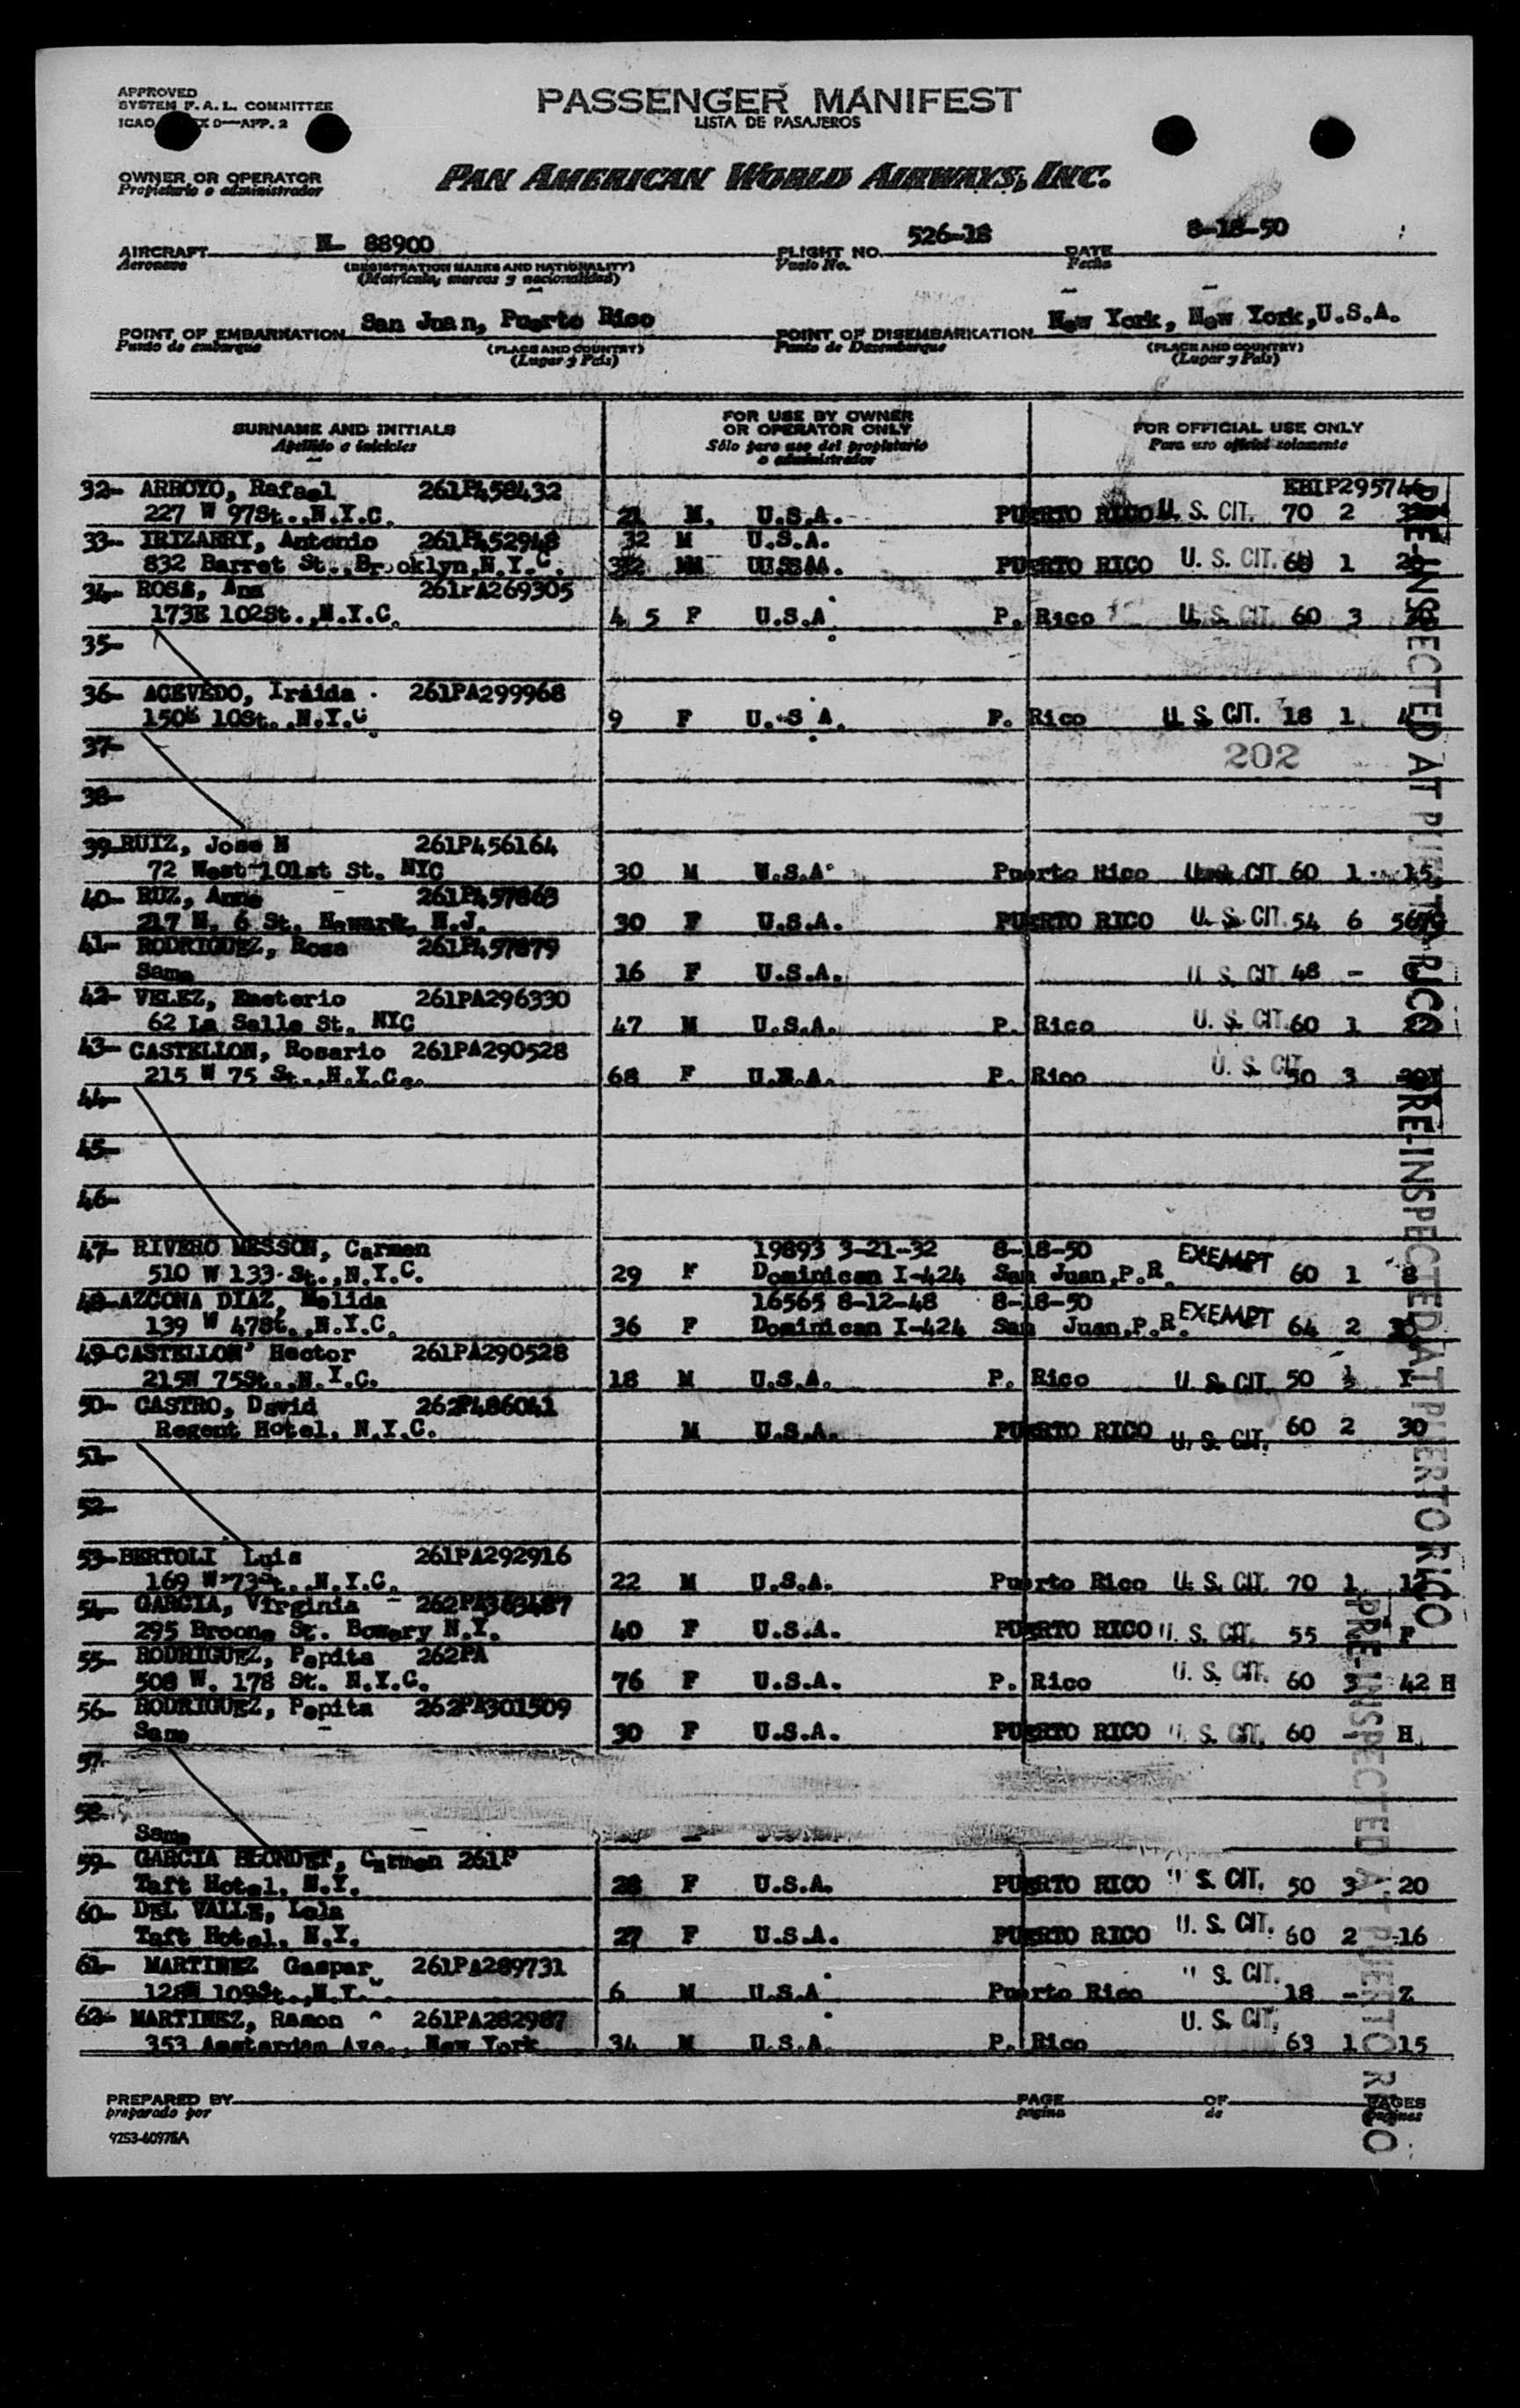 APPROVED
SYSTEM F. A. L. COMMITTEE
ICAO X D—APP. 2
PASSENGER MANIFEST
LISTA DE PASAJEROS
OWNER OR OPERATOR
Propietario o administrador
PAN AMERICAN WORLD AIRWAYS, INC.
AIRCRAFT N- 88900 FLIGHT NO. 526-18 DATE 8-18-50
Aeronave (REGISTRATION MARKS AND NATIONALITY) Vuelo No. Fecha
(Matricula, marcas y nacionalidad)
POINT OF EMBARKATION San Juan, Puerto Rico POINT OF DISEMBARKATION New York, New York, U.S.A.
Punto de embarque (PLACE AND COUNTRY) Punto de Desembarque (PLACE AND COUNTRY)
(Lugar y País) (Lugar y País)
SURNAME AND INITIALS FOR USE BY OWNER OR OPERATOR ONLY FOR OFFICIAL USE ONLY
Apellido e iniciales Sólo para uso del propietario o administrador Para uso oficial solamente
32- ARROYO, Rafael 261P458432
227 W 97St., N.Y.C. 21 M. U.S.A. PUERTO RICO U. S. CIT. 70 2
33- IRIZARRY, Antonio 261P452948 32 M U.S.A.
832 Barret St., Brooklyn, N.Y.C. PUERTO RICO U. S. CIT. 68 1
34- ROSA, Ana 261PA269305
173E 102St., N.Y.C. 4 5 F U.S.A. P. Rico U. S. CIT. 60 3
35-
36- ACEVEDO, Iraida 261PA299968
150E 10St., N.Y.C 9 F U.S A. P. Rico U. S. CIT. 18 1
37- 202
38-
39- RUIZ, Jose M 261P456164
72 West 101st St. NYC 30 M U.S.A. Puerto Rico CIT 60 1 15
40- RUZ, Anne 261P457868
217 N. 6 St. Newark, N.J. 30 F U.S.A. PUERTO RICO U. S. CIT. 54 6
41- RODRIGUEZ, Rosa 261P457879
Same 16 F U.S.A. U. S. CIT 48 -
42- VELEZ, Emeterio 261PA296330
62 La Salle St. NYC 47 M U.S.A. P. Rico U. S. CIT. 60 1 22
43- CASTELLON, Rosario 261PA290528
215 W 75 St., N.Y.C. 68 F U.S.A. P. Rico U. S. CIT. 50 3
44-
45-
46-
47- RIVERO MESSON, Carmen 19893 3-21-32 8-18-50
510 W 133 St., N.Y.C. 29 F Dominican I-424 San Juan, P.R. EXEMPT 60 1 8
48- AZCONA DIAZ, Melida 16565 8-12-48 8-18-50
139 W 47St., N.Y.C. 36 F Dominican I-424 San Juan, P.R. EXEMPT 64 2
49- CASTELLON' Hector 261PA290528
215W 75St., N.Y.C. 18 M U.S.A. P. Rico U. S. CIT. 50 ½
50- CASTRO, David 262P486041
Regent Hotel, N.Y.C. M U.S.A. PUERTO RICO U. S. CIT. 60 2 30
51-
52-
53- BERTOLI Luis 261PA292916
169 W 73St., N.Y.C. 22 M U.S.A. Puerto Rico U. S. CIT. 70 1
54- GARCIA, Virginia 262PA363487
295 Broone St. Bowery N.Y. 40 F U.S.A. PUERTO RICO U. S. CIT. 55 F
55- RODRIGUEZ, Pepita 262PA
508 W. 178 St. N.Y.C. 76 F U.S.A. P. Rico U. S. CIT. 60 3 42 H
56- RODRIGUEZ, Pepita 262PA301509
Same 30 F U.S.A. PUERTO RICO U. S. CIT. 60 - H
57-
58-
Same
59- GARCIA BLONDET, Carmen 261P
Taft Hotel, N.Y. 28 F U.S.A. PUERTO RICO S. CIT. 50 3 20
60- DEL VALLE, Lola
Taft Hotel, N.Y. 27 F U.S.A. PUERTO RICO U. S. CIT. 60 2 16
61- MARTINEZ Gaspar 261PA289731
128W 109St., N.Y. 6 M U.S.A Puerto Rico S. CIT. 18 - Z
62- MARTINEZ, Ramon 261PA282987
353 Amsterdam Ave., New York 34 M U.S.A. P. Rico U. S. CIT. 63 1 15
PRE-INSPECTED AT PUERTO RICO
PRE-INSPECTED AT PUERTO RICO
PRE-INSPECTED AT PUERTO RICO
PREPARED BY PAGE OF PAGES
preparado por pagina de paginas
9253-60975A